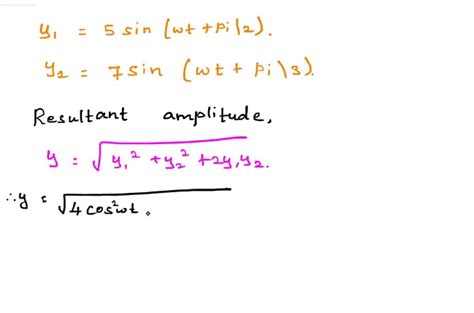 y₁ = 5 sin (wt + pi/2).
y₂ = 7 sin (wt + pi\3).
Resultant amplitude,
y = √y₁² + y₂² + 2y₁y₂.
∴ y = √4 cos²wt .